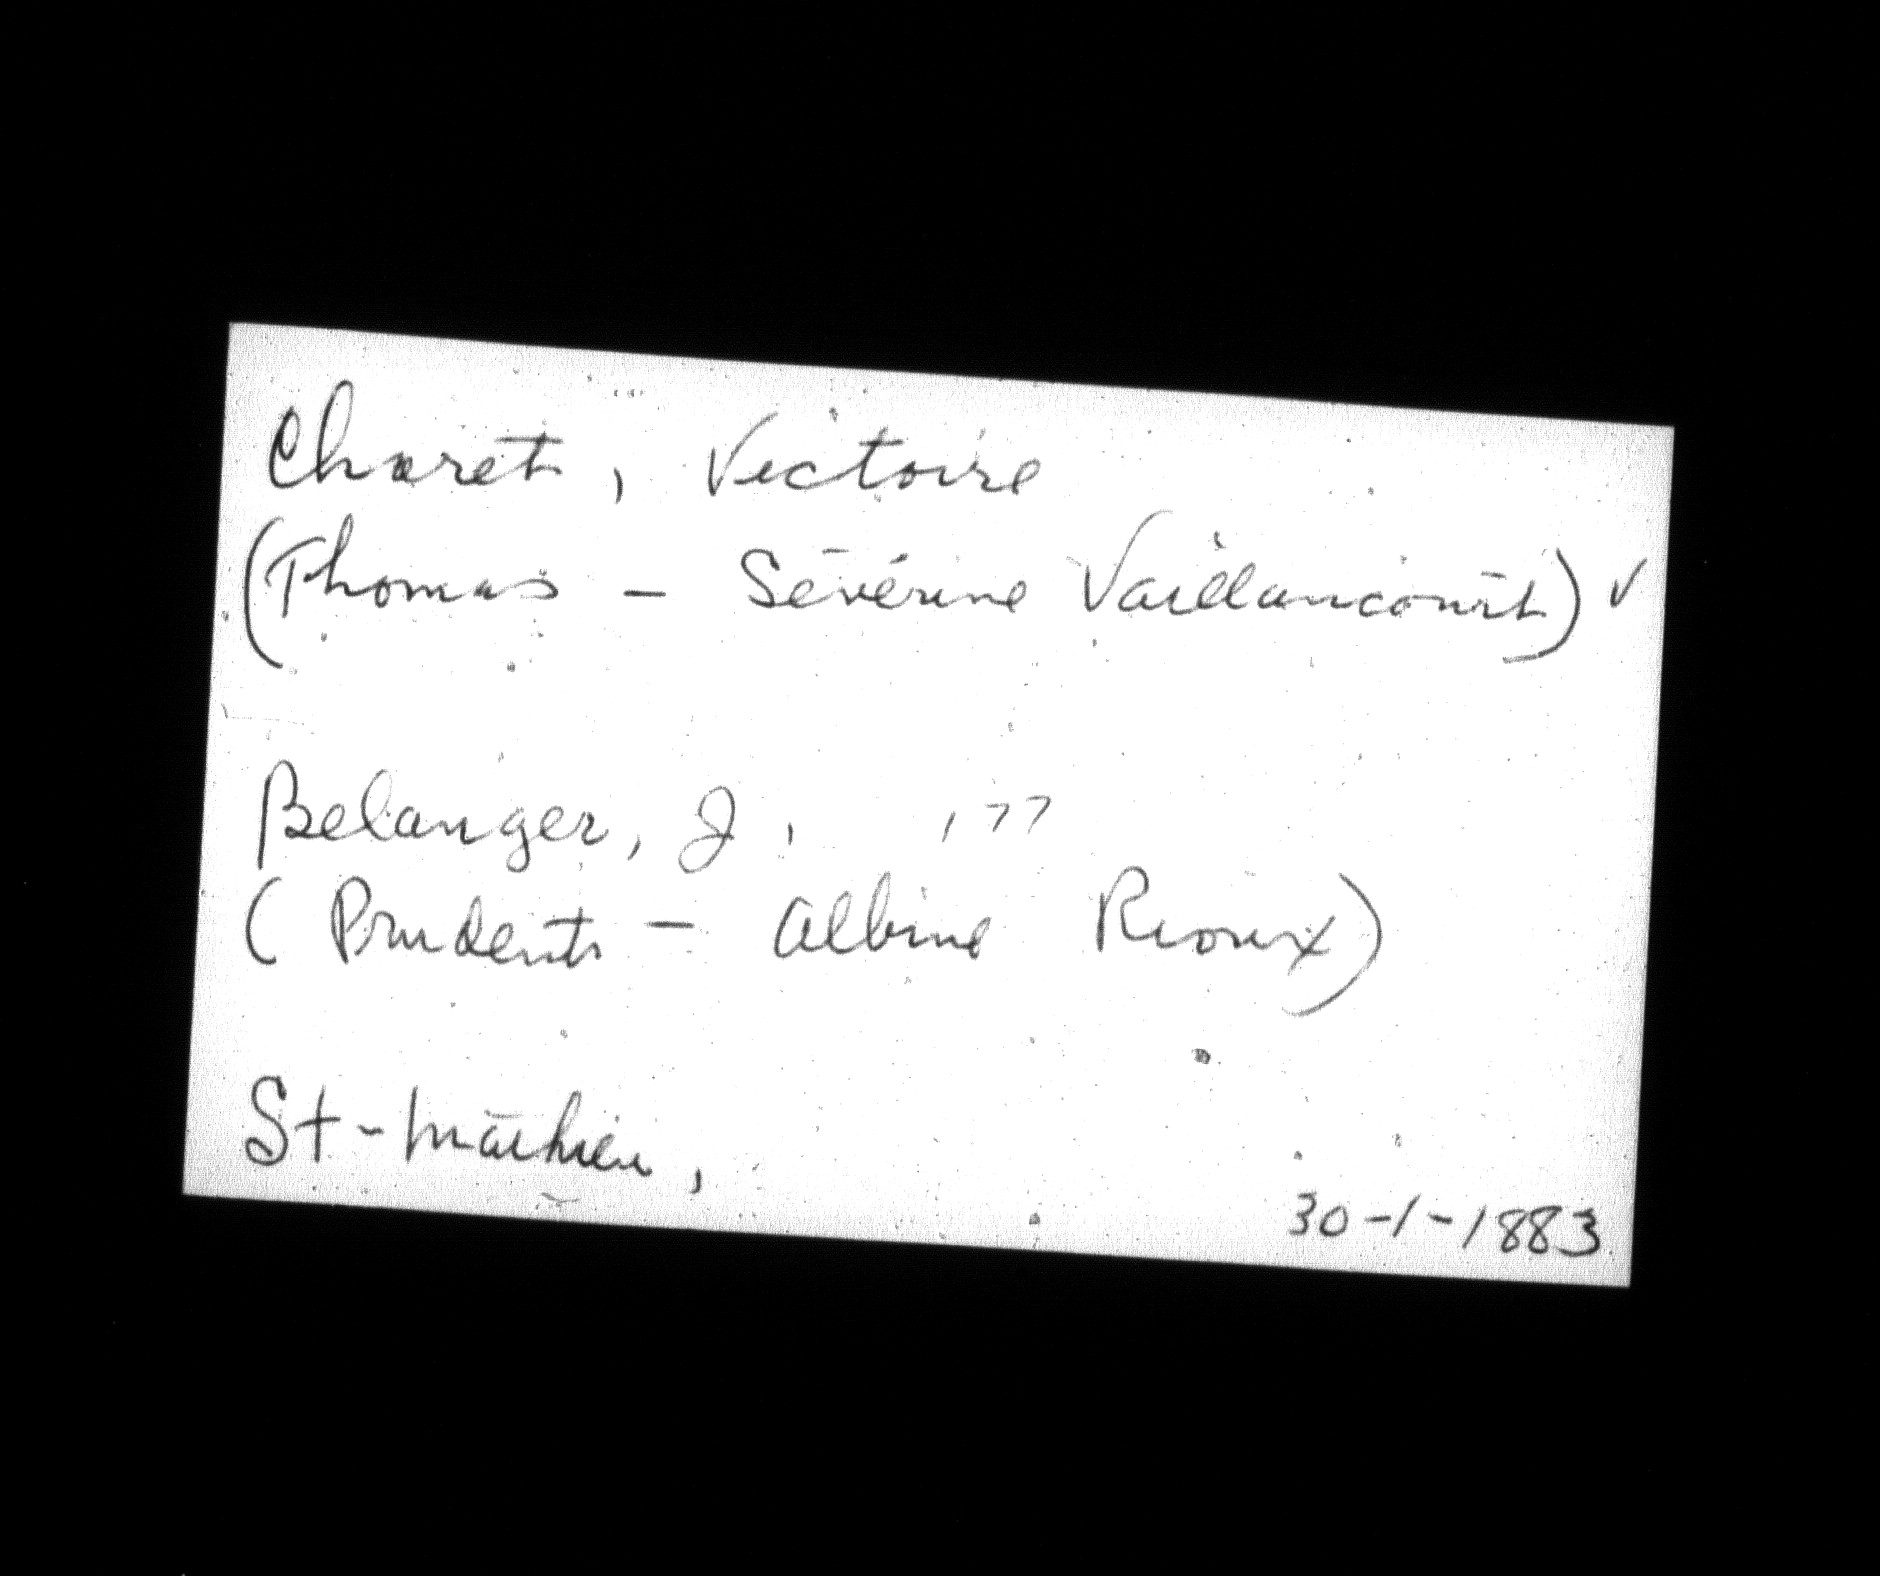 Charet, Victoire
(Thomas - Sévérine Vaillancourt) ✓
Belanger, J. , ? ?
(Prudent - Albine Rioux)
St-Mathieu,
30-1-1883